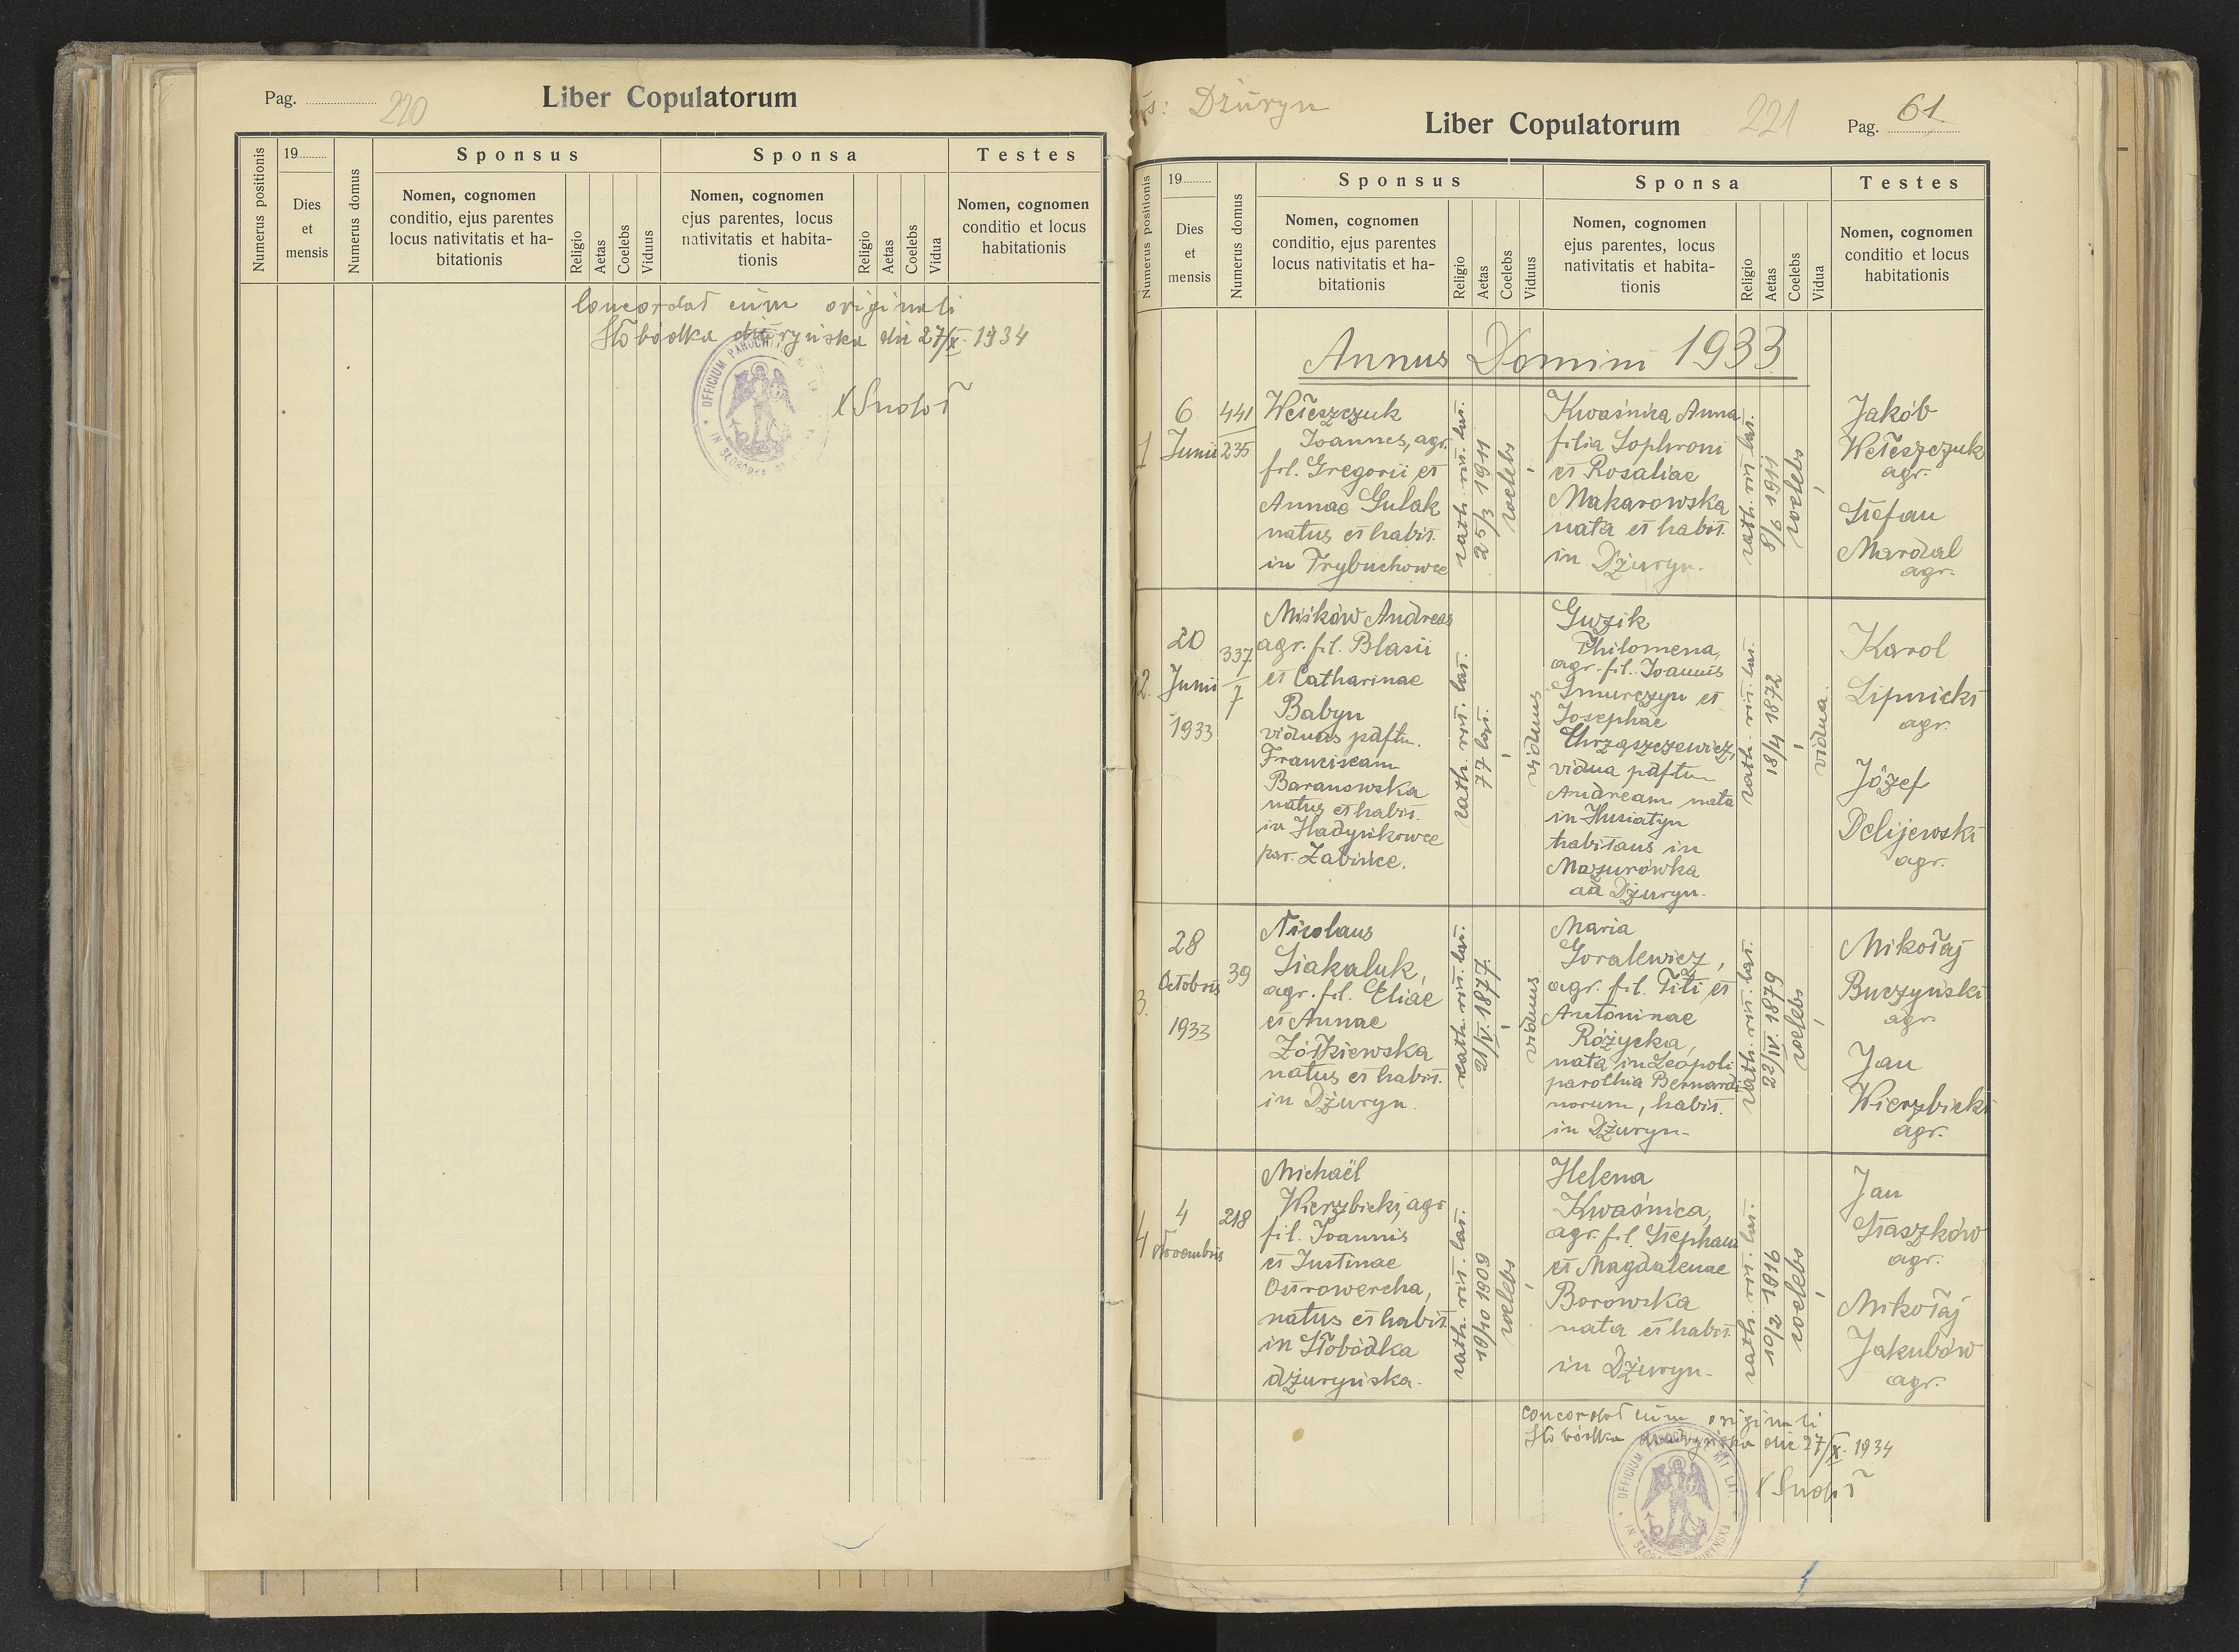 Pag. 220
Liber Copulatorum
Numerus positionis
19
Dies
et
mensis
Numerus domus
Sponsus
Nomen, cognomen
conditio, ejus parentes
locus nativitatis et ha-
bitationis
Religio
Aetas
Coelebs
Viduus
Sponsa
Nomen, cognomen
ejus parentes, locus
nativitatis et habita-
tionis
Religio
Aetas
Coelebs
Vidua
Testes
Nomen, cognomen
conditio et locus
habitationis
Concordat cum originali
Słobódka dżuryńska die 27/X. 1934
OFFICIUM PAROCHIALE
Dżuryn
Liber Copulatorum
221
Pag. 61
Numerus positionis
19
Dies
et
mensis
Numerus domus
Sponsus
Nomen, cognomen
conditio, ejus parentes
locus nativitatis et ha-
bitationis
Religio
Aetas
Coelebs
Viduus
Sponsa
Nomen, cognomen
ejus parentes, locus
nativitatis et habita-
tionis
Religio
Aetas
Coelebs
Vidua
Testes
Nomen, cognomen
conditio et locus
habitationis
Annus Domini 1933
1
6
Junii
441
235
Wełeszczuk
Joannes, agr.
fil. Gregorii et
Annae Gulak
natus et habit.
in Trybuchowce
cath. rit. lat.
25/3 1911
coelebs
Kwaśnica Anna
filia Sophroni
et Rosaliae
Makarowska
nata et habit.
in Dżuryn.
cath. rit. lat.
8/6 1911
coelebs
Jakób
Wełeszczuk
agr.
Stefan
Marcal
agr.
2.
20
Junii
1933
337
7
Miśków Andreas
agr. fil. Blasii
et Catharinae
Babyn
viduus p. dftu.
Franciscam
Baranowska
natus et habit.
in Hadyńkowce
par. Żabińce.
cath. rit. lat.
77 lat.
viduus
Guzik
Philomena,
agr. fil. Joannis
Smurczyn et
Josephae
Chrząszczewicz,
vidua p. dftu
Andream nata
in Husiatyn
habitans in
Mazurówka
ad Dżuryn.
cath. rit. lat.
18/4 1872
vidua.
Karol
Lipnicki
agr.
Józef
Delijewski
agr.
3.
28
Octobris
1933
39
Nicolaus
Siakaluk,
agr. fil. Eliae
et Annae
Żółkiewska
natus et habit.
in Dżuryn.
cath. rit. lat.
21/V. 1877.
viduus
Maria
Goralewicz,
agr. fil. Titi et
Antoninae
Różycka,
nata in Leopoli
parochia Bernardi
norum, habit.
in Dżuryn.
cath. rit. lat.
22/IV. 1879
coelebs
Mikołaj
Buczyński
agr.
Jan
Wierzbicki
agr.
4
4
Novembris
218
Michaël
Wierzbicki, agr
fil. Joannis
et Justinae
Ostrowercha,
natus et habit.
in Słobódka
dżuryńska.
cath. rit. lat.
19/10 1909
coelebs
Helena
Kwaśnica,
agr. fil. Stephani
et Magdalenae
Borowska
nata et habit.
in Dżuryn.
cath. rit. lat.
10/2 1916
coelebs
Jan
Staszków
agr.
Mikołaj
Jakubów
agr.
concordat cum originali
Słobódka dżuryńska die 27/X. 1934
OFFICIUM PAROCHIALE RIT. LAT.